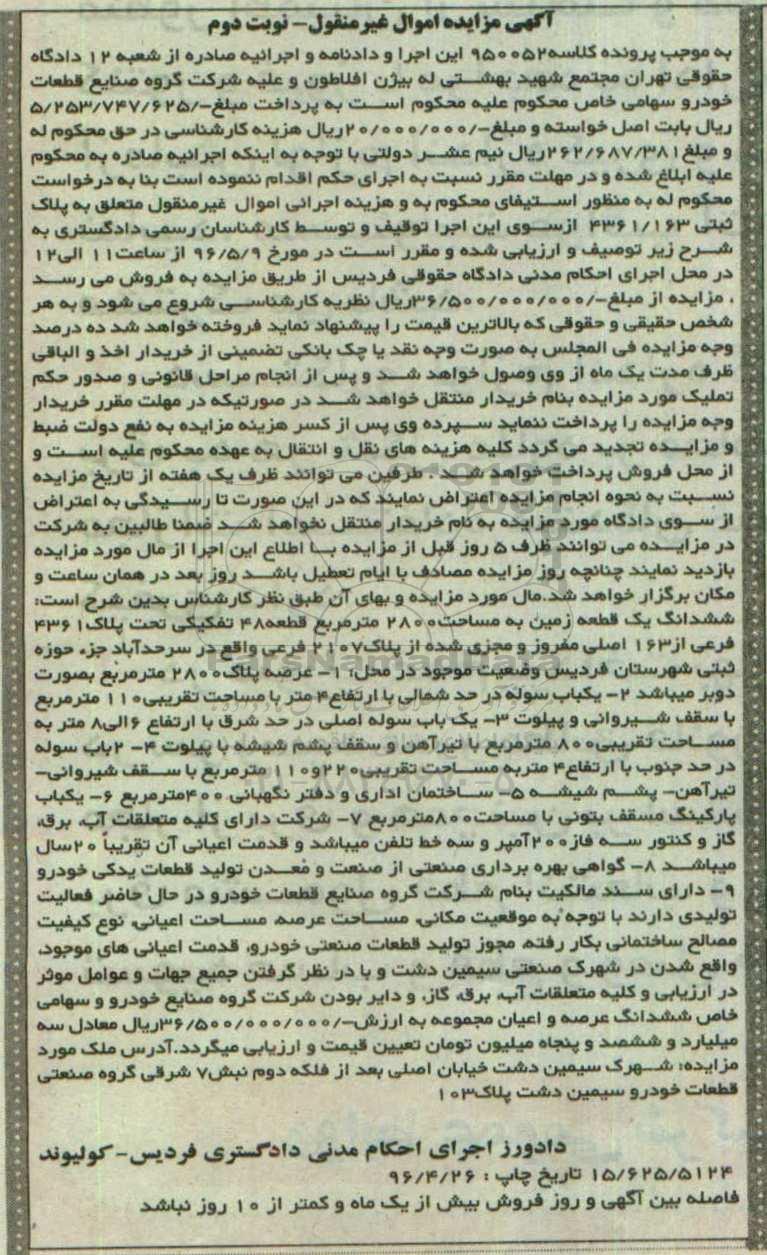 آگهی مزایده اموال غیرمنقول- نوبت دوم
به موجب پرونده کلاسه۹۵۰۰۵۲ این اجرا و دادنامه و اجرائیه صادره از شعبه ۱۲ دادگاه
حقوقی تهران مجتمع شهید بهشتی له بیژن افلاطون و علیه شرکت گروه صنایع قطعات
خودرو سهامی خاص محکوم علیه محکوم است به پرداخت مبلغ-/۵/۲۵۳/۷۴۷/۶۲۵
ریال بابت اصل خواسته و مبلغ-/۲۰/۰۰۰/۰۰۰ریال هزینه کارشناسی در حق محکوم له
و مبلغ۲۶۲/۶۸۷/۳۸۱ریال نیم عشر دولتی با توجه به اینکه اجرائیه صادره به محکوم
علیه ابلاغ شده و در مهلت مقرر نسبت به اجرای حکم اقدام ننموده است بنا به درخواست
محکوم له به منظور استیفای محکوم به و هزینه اجرائی اموال غیرمنقول متعلق به پلاک
ثبتی ۴۳۶۱/۱۶۳ ازسوی این اجرا توقیف و توسط کارشناسان رسمی دادگستری به
شرح زیر توصیف و ارزیابی شده و مقرر است در مورخ ۹۶/۵/۹ از ساعت۱۱ الی۱۲
در محل اجرای احکام مدنی دادگاه حقوقی فردیس از طریق مزایده به فروش می رسد
، مزایده از مبلغ-/۳۶/۵۰۰/۰۰۰/۰۰۰ریال نظریه کارشناسی شروع می شود و به هر
شخص حقیقی و حقوقی که بالاترین قیمت را پیشنهاد نماید فروخته خواهد شد ده درصد
وجه مزایده فی المجلس به صورت وجه نقد یا چک بانکی تضمینی از خریدار اخذ و الباقی
ظرف مدت یک ماه از وی وصول خواهد شد و پس از انجام مراحل قانونی و صدور حکم
تملیک مورد مزایده بنام خریدار منتقل خواهد شد در صورتیکه در مهلت مقرر خریدار
وجه مزایده را پرداخت ننماید سپرده وی پس از کسر هزینه مزایده به نفع دولت ضبط
و مزایده تجدید می گردد کلیه هزینه های نقل و انتقال به عهده محکوم علیه است و
از محل فروش پرداخت خواهد شد . طرفین می توانند ظرف یک هفته از تاریخ مزایده
نسبت به نحوه انجام مزایده اعتراض نمایند که در این صورت تا رسیدگی به اعتراض
از سوی دادگاه مورد مزایده به نام خریدار منتقل نخواهد شد ضمنا طالبین به شرکت
در مزایده می توانند ظرف ۵ روز قبل از مزایده با اطلاع این اجرا از مال مورد مزایده
بازدید نمایند چنانچه روز مزایده مصادف با ایام تعطیل باشد روز بعد در همان ساعت و
مکان برگزار خواهد شد.مال مورد مزایده و بهای آن طبق نظر کارشناس بدین شرح است:
ششدانگ یک قطعه زمین به مساحت۲۸۰۰ مترمربع قطعه۴۸ تفکیکی تحت پلاک۴۳۶۱
فرعی از۱۶۳ اصلی مفروز و مجزی شده از پلاک۲۱۰۷ فرعی واقع در سرحدآباد جزء حوزه
ثبتی شهرستان فردیس وضعیت موجود در محل: ۱- عرصه پلاک۲۸۰۰ مترمربع بصورت
دوبر میباشد ۲- یکباب سوله در حد شمالی با ارتفاع۴ متر با مساحت تقریبی۱۱۰ مترمربع
با سقف شیروانی و پیلوت ۳- یک باب سوله اصلی در حد شرق با ارتفاع ۶الی۸ متر به
مساحت تقریبی۸۰۰ مترمربع با تیرآهن و سقف پشم شیشه با پیلوت ۴- ۲باب سوله
در حد جنوب با ارتفاع۴ متربه مساحت تقریبی۲۲۰و۱۱۰ مترمربع با سقف شیروانی-
تیرآهن- پشم شیشه ۵- ساختمان اداری و دفتر نگهبانی ۴۰۰مترمربع ۶- یکباب
پارکینگ مسقف بتونی با مساحت۸۰۰مترمربع ۷- شرکت دارای کلیه متعلقات آب، برق،
گاز و کنتور سه فاز۲۰۰آمپر و سه خط تلفن میباشد و قدمت اعیانی آن تقریباً ۲۰سال
میباشد ۸- گواهی بهره برداری صنعتی از صنعت و معدن تولید قطعات یدکی خودرو
۹- دارای سند مالکیت بنام شرکت گروه صنایع قطعات خودرو در حال حاضر فعالیت
تولیدی دارند با توجه به موقعیت مکانی، مساحت عرصه، مساحت اعیانی، نوع کیفیت
مصالح ساختمانی بکار رفته، مجوز تولید قطعات صنعتی خودرو، قدمت اعیانی های موجود،
واقع شدن در شهرک صنعتی سیمین دشت و با در نظر گرفتن جمیع جهات و عوامل موثر
در ارزیابی و کلیه متعلقات آب، برق، گاز، و دایر بودن شرکت گروه صنایع خودرو و سهامی
خاص ششدانگ عرصه و اعیان مجموعه به ارزش-/۳۶/۵۰۰/۰۰۰/۰۰۰ریال معادل سه
میلیارد و ششصد و پنجاه میلیون تومان تعیین قیمت و ارزیابی میگردد.آدرس ملک مورد
مزایده: شهرک سیمین دشت خیابان اصلی بعد از فلکه دوم نبش۷ شرقی گروه صنعتی
قطعات خودرو سیمین دشت پلاک۱۰۳
دادورز اجرای احکام مدنی دادگستری فردیس- کولیوند
۱۵/۶۲۵/۵۱۲۴ تاریخ چاپ : ۹۶/۴/۲۶
فاصله بین آگهی و روز فروش بیش از یک ماه و کمتر از ۱۰ روز نباشد